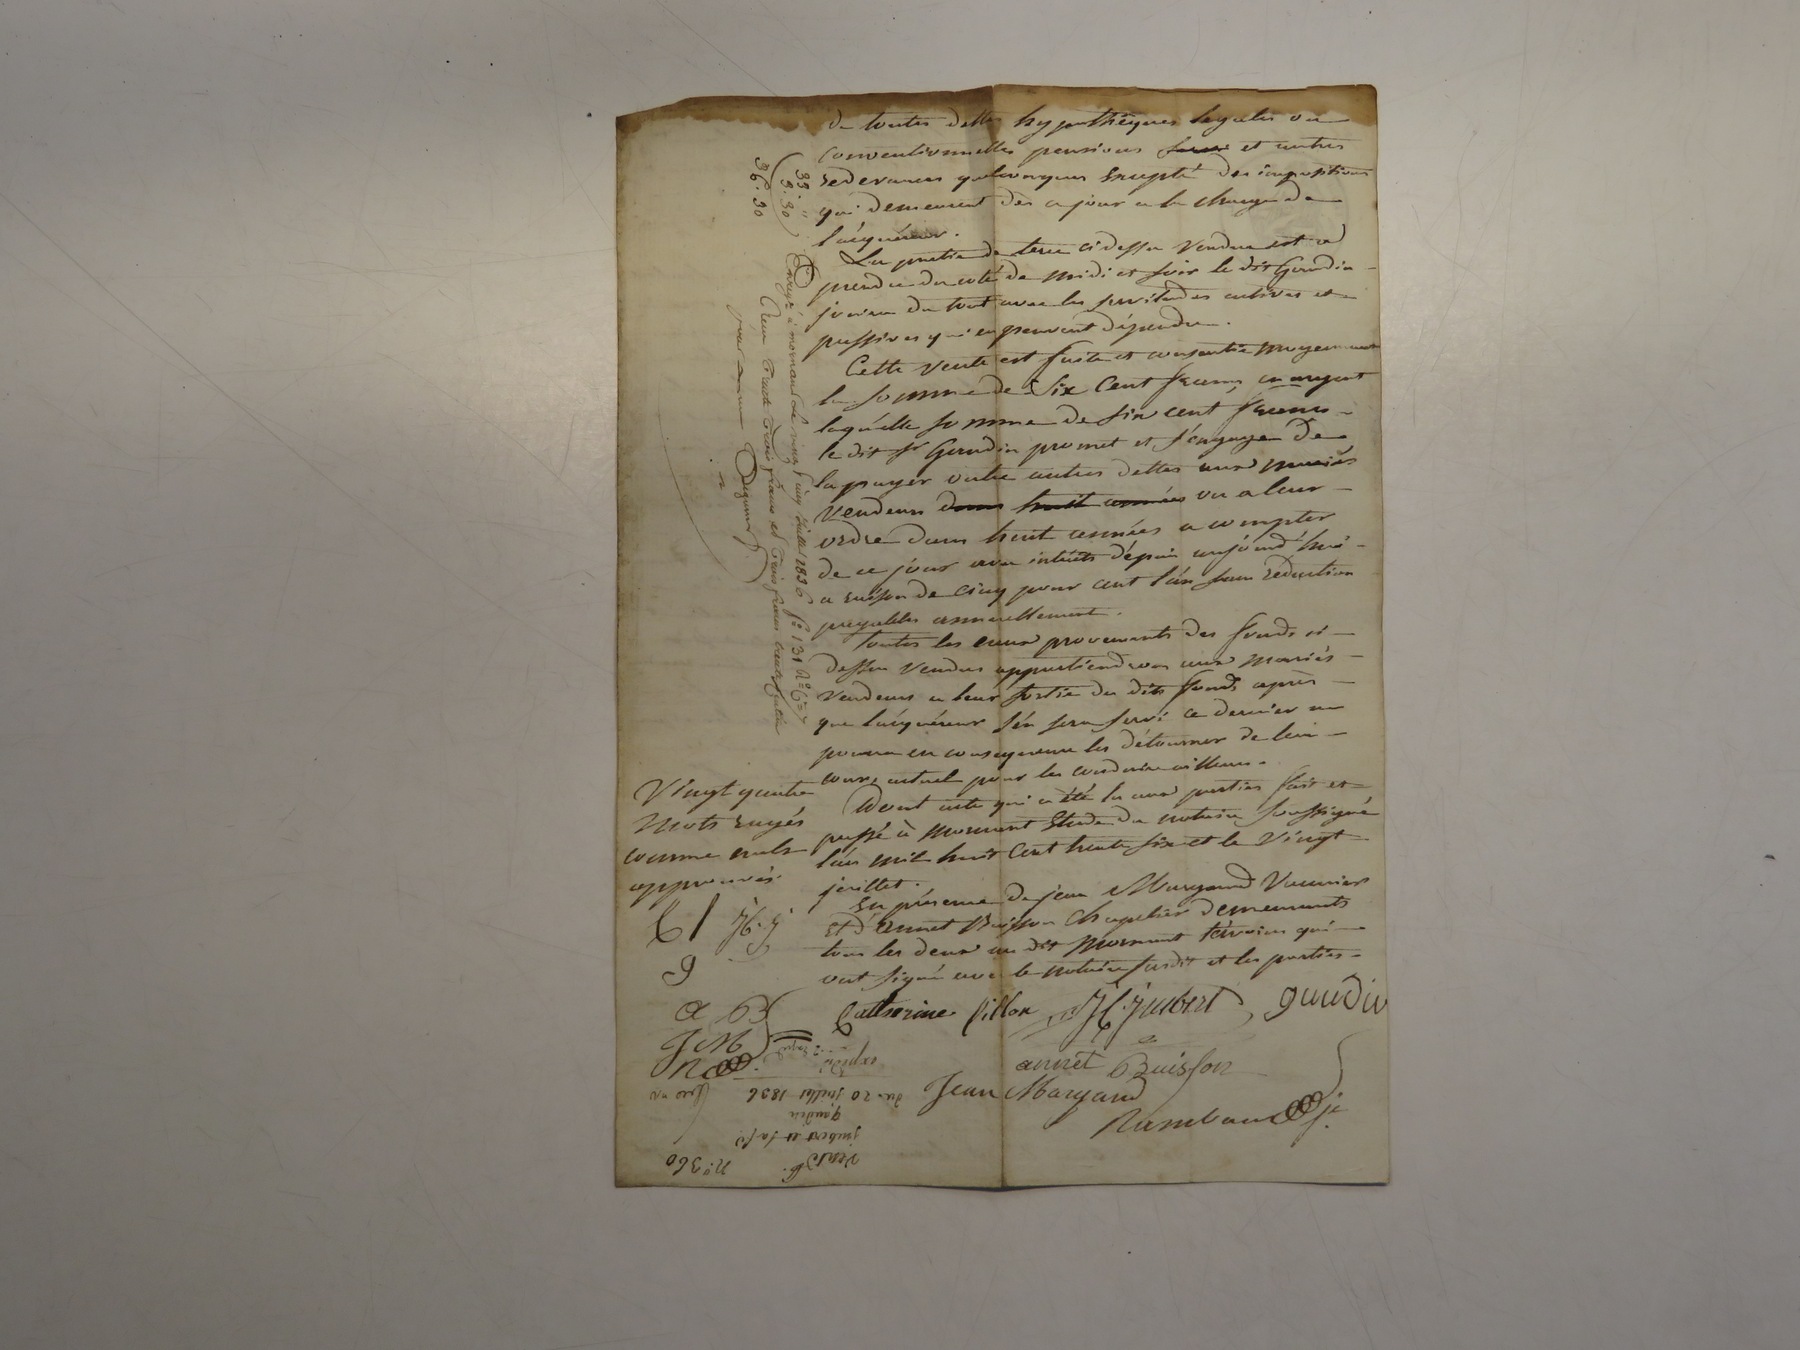 de toutes dettes hypothèques legales ou
conventionnelles pensions et autres
redevances quelconques Excepté des impositions
qui demeurent dès ce jour a la charge de
l'acquéreur.
La partie de terre ci dessu vendue est a
prendre du coté de midi et soir le dit Gaudin
jouira du tout avec les servitudes actives et
passives qui en peuvent dépendre.
Cette vente est faite et consentie moyennant
la somme de Six Cent francs, en argent
laquelle somme de six cent francs
le dit Sr Gaudin promet et s'engage de
la payer outre autres dettes aux mariés
vendeurs dans huit années ou a leur
ordre dans huit années a compter
de ce jour avec intérêts dépuis aujourd'hui
a raison de cinq pour cent l'an sans réduction
payables annuellement.
Toutes les eaux provenants des fonds ci
dessu vendus appartiendront aux mariés
vendeurs a leur sortie des dits fonds après
que l'acquéreur s'én sera servi ce dernier ne
pourra en consequence les détourner de leur
cours actuel pour les conduire ailleurs.
Dont acte qui a été lu aux parties fait et
passé à Mornant Etude du notaire soussigné
l'an mil huit Cent trente six et le vingt
juillet.
En présence de jean Margand
Et d'Annet Buisson Chapelier demeurants
tous les deux au dit Mornant témoins qui
ont signé avec le notaire susdit et les parties
Catherine Pillon J C Jmbert, gaudin
annet Buisson
Jean Margand
Rambaud je
Vingt quatre
mots rayés
comme nuls
approuvés
C P JC. J
g
a B
J M
R
33 "
3. 30
36. 30
Enregé à mornant le vingt cinq Juillet 1836 fo 131
Reçu trente trois francs et trois francs trente
No. 360
Vente
jmbert et sa fe
Gaudin
du 20 juillet 1836
expédié